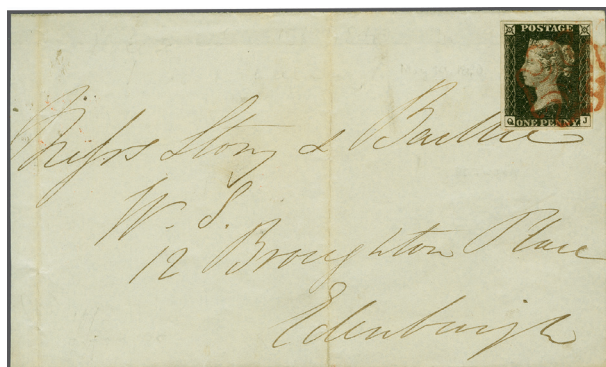 POSTAGE
Q ONE PENNY J
Messrs Story & Baillie
W. S.
12 Broughton Place
Edenburgh